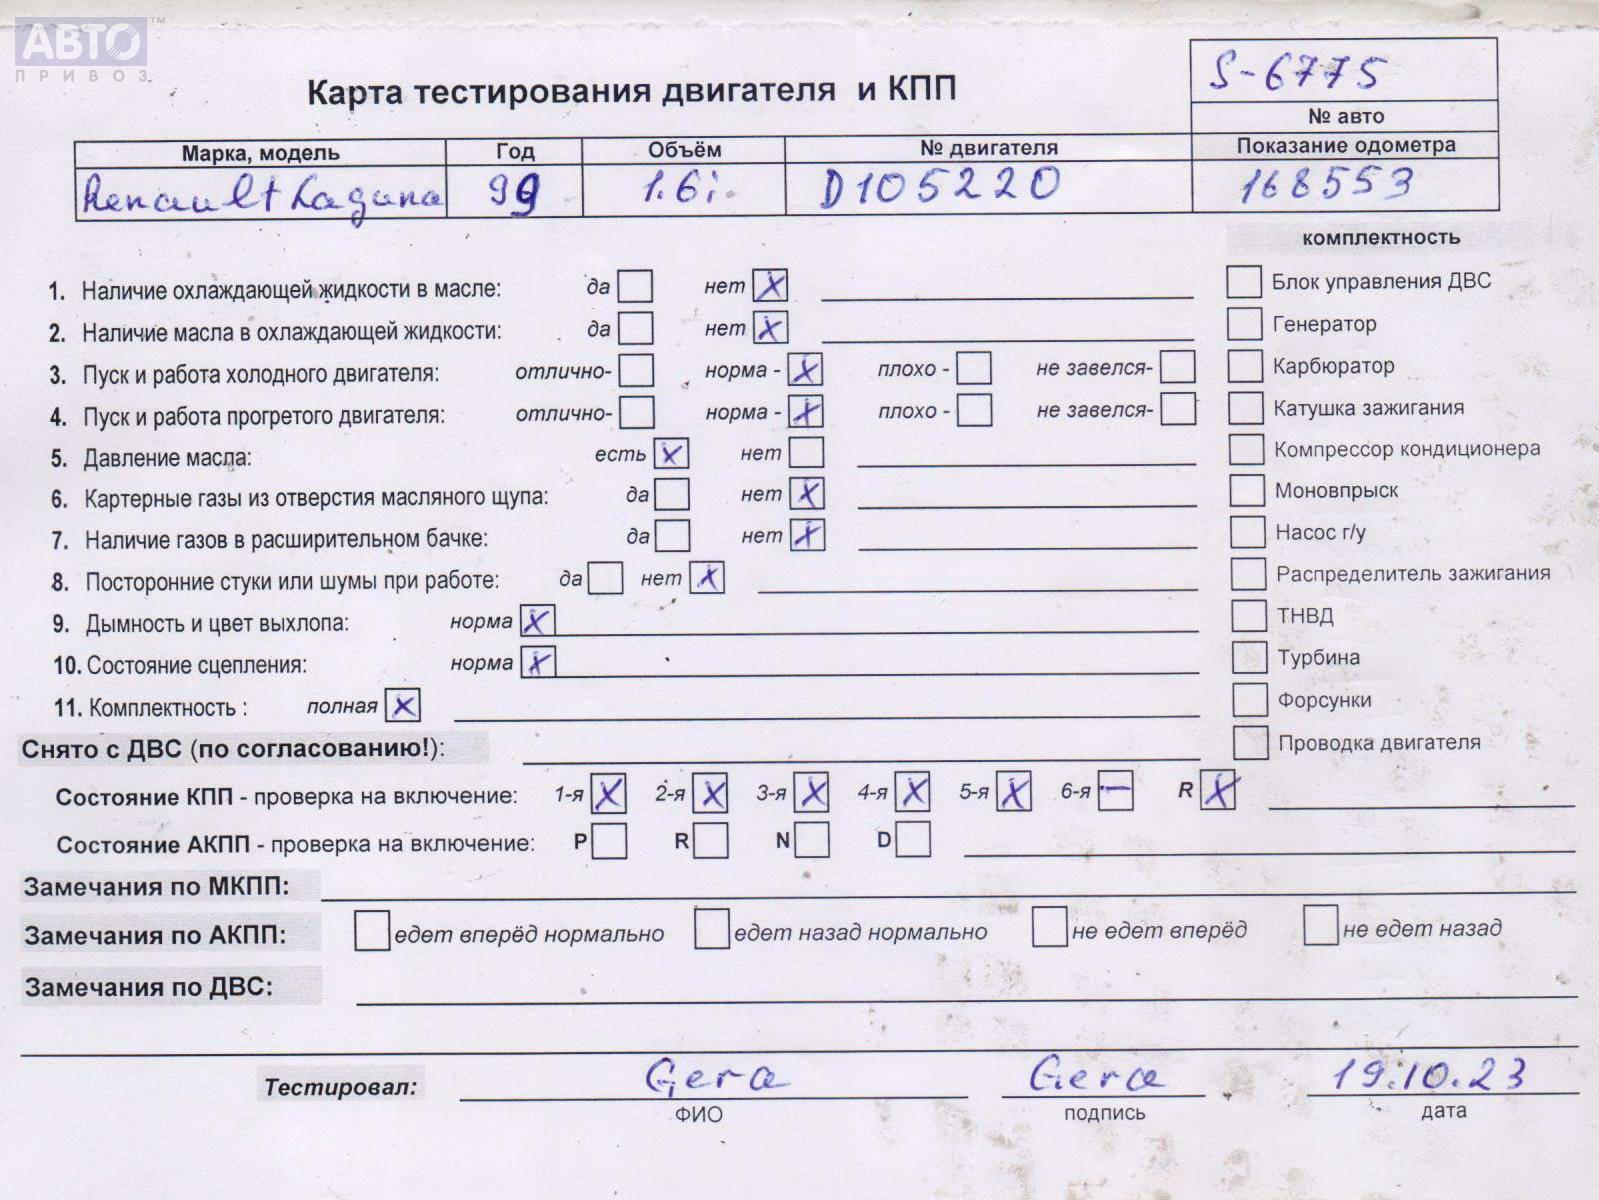 АВТО™
ПРИВОЗ
Карта тестирования двигателя и КПП
S-6775
№ авто
Марка, модель Год Объём № двигателя Показание одометра
Renault Laguna 99 1.6i. D105220 168553
комплектность
1. Наличие охлаждающей жидкости в масле: да нет X
Блок управления ДВС
2. Наличие масла в охлаждающей жидкости: да нет X
Генератор
3. Пуск и работа холодного двигателя: отлично- норма - X плохо - не завелся-
Карбюратор
4. Пуск и работа прогретого двигателя: отлично- норма - X плохо - не завелся-
Катушка зажигания
5. Давление масла: есть X нет
Компрессор кондиционера
6. Картерные газы из отверстия масляного щупа: да нет X
Моновпрыск
7. Наличие газов в расширительном бачке: да нет X
Насос г/у
8. Посторонние стуки или шумы при работе: да нет X
Распределитель зажигания
9. Дымность и цвет выхлопа: норма X
ТНВД
10. Состояние сцепления: норма X
Турбина
11. Комплектность : полная X
Форсунки
Снято с ДВС (по согласованию!):
Проводка двигателя
Состояние КПП - проверка на включение: 1-я X 2-я X 3-я X 4-я X 5-я X 6-я — R X
Состояние АКПП - проверка на включение: P R N D
Замечания по МКПП:
Замечания по АКПП: едет вперёд нормально едет назад нормально не едет вперёд не едет назад
Замечания по ДВС:
Тестировал: Gera Gera 19.10.23
ФИО подпись дата